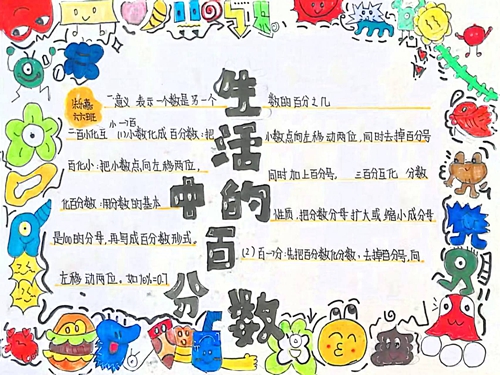 生活中的百分数
六班
一意义 表示一个数是另一个数的百分之几
二百小化互 小→百
(1)小数化成百分数:把小数点向左移动两位,同时去掉百分号
百化小:把小数点向左移两位,同时加上百分号, 三百分互化 分数
化百分数:用分数的基本性质,把分数分母扩大或缩小成分母
是100的分母,再写成百分数形式, (2)百→分:先把百分数化分数,去掉百分号,向
左移动两位。如70%=0.7